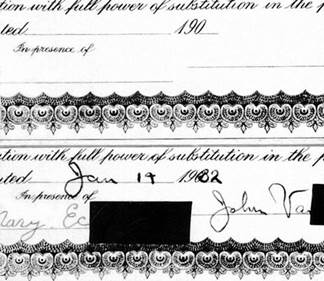 tion with full power of substitution in the p
ted 190
In presence of
ution with full power of substitution in the p
ated Jan 19 1982
In presence of
Mary John Va